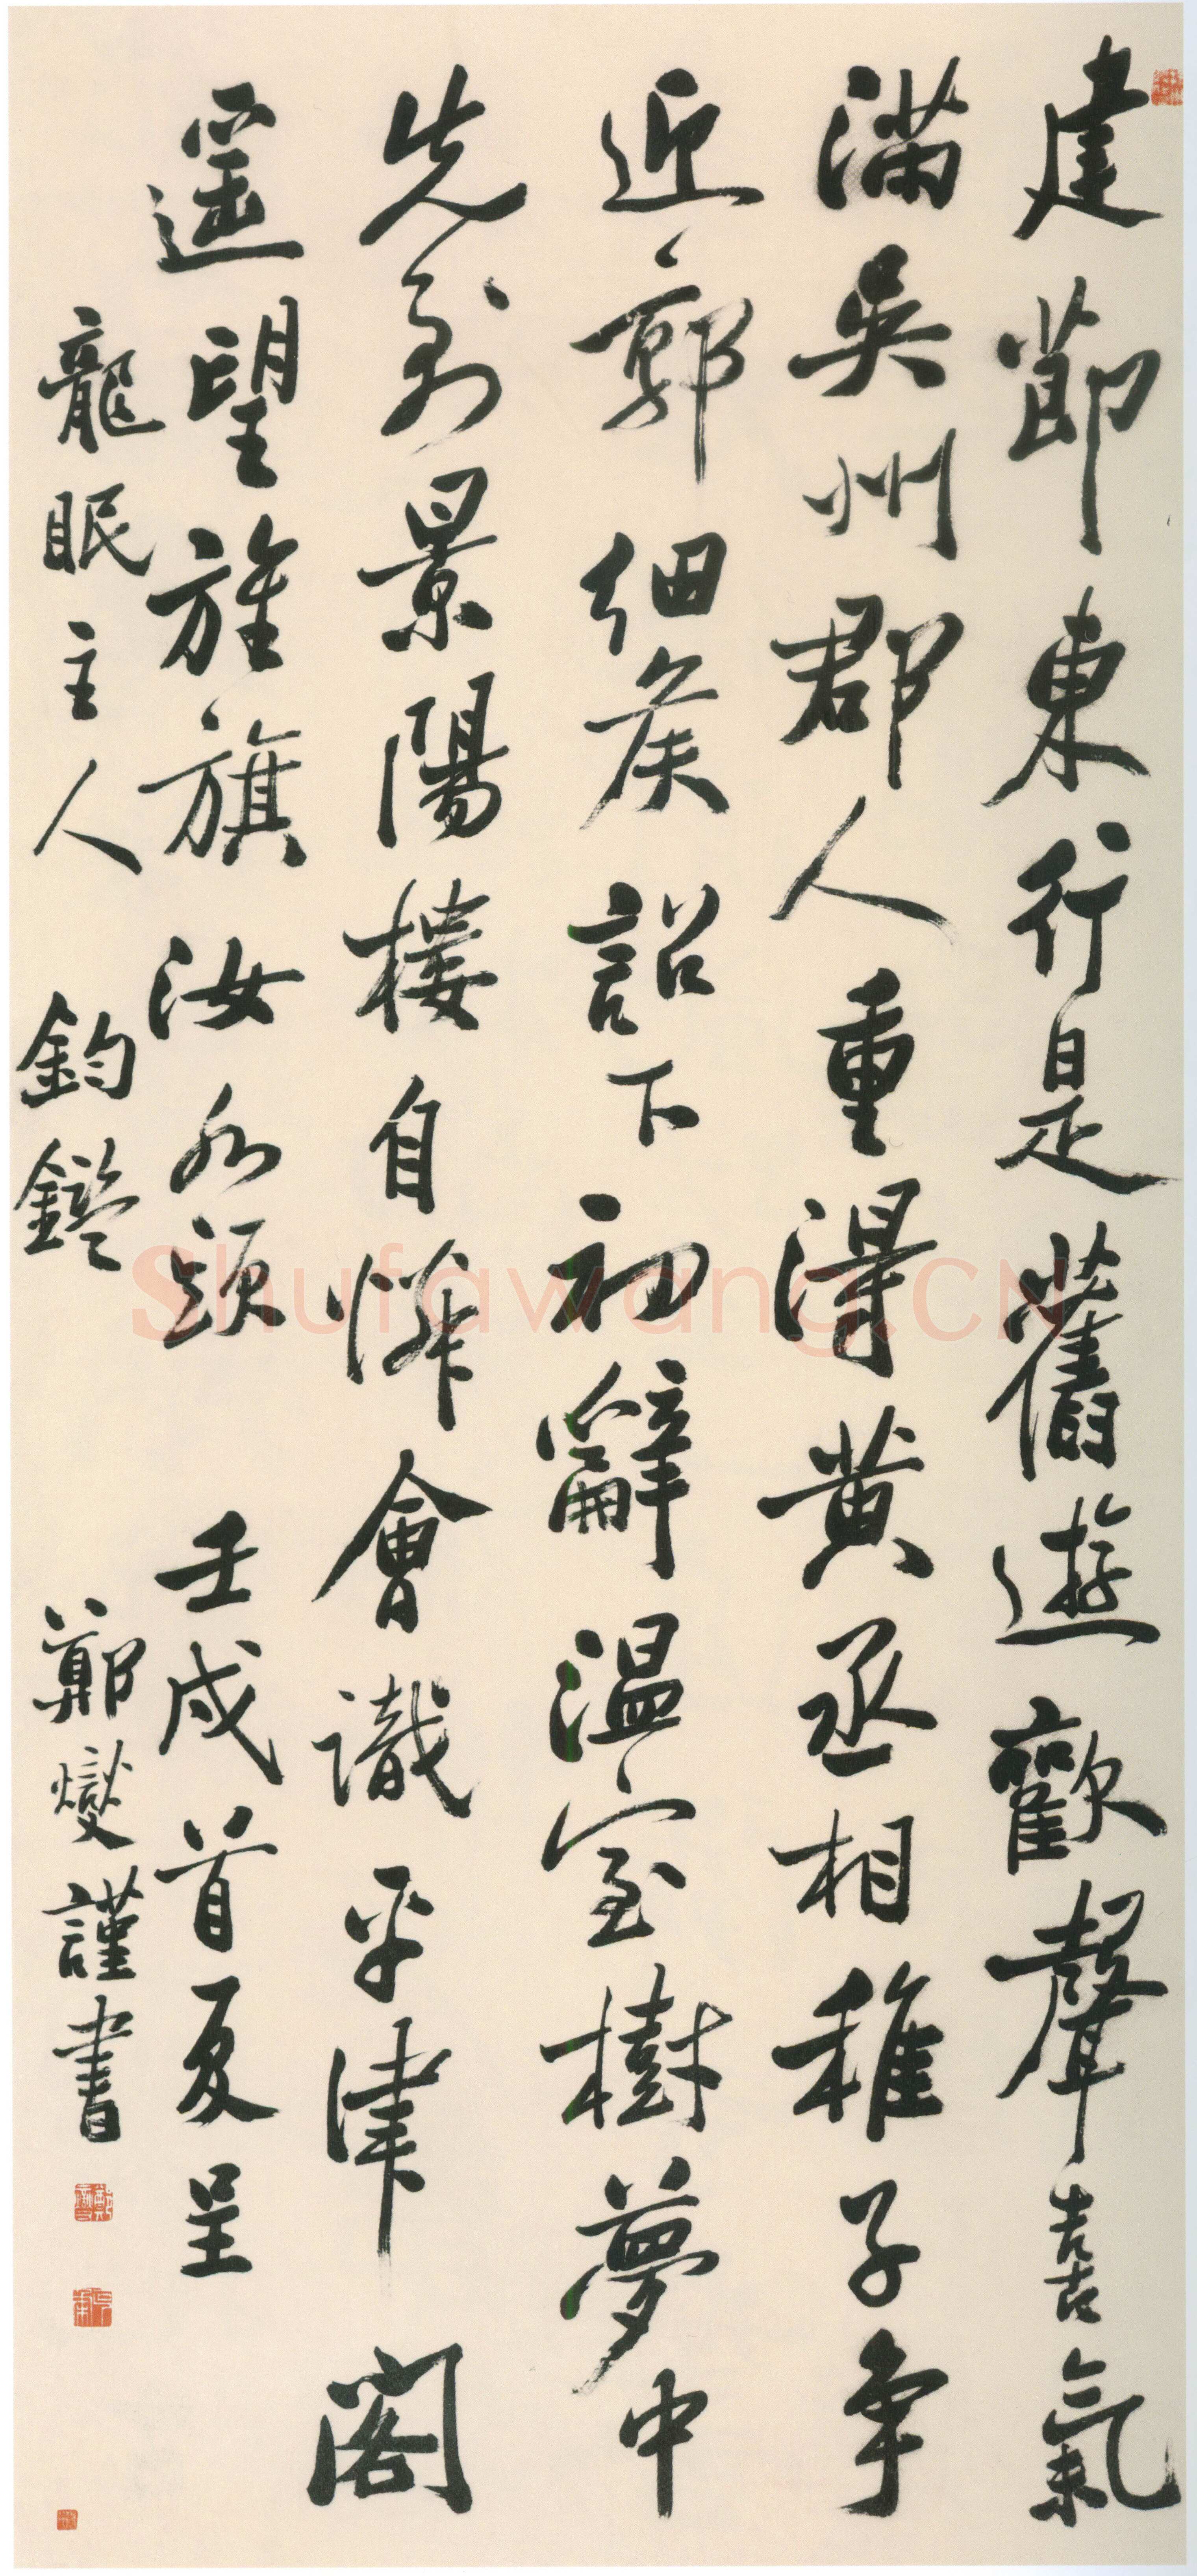 建節東行是舊遊歡聲喜氣
滿吳州郡人重得黃丞相稚子爭
近郭細侯詔下初辭溫室樹夢中
先到景陽樓自憐曾識平津閣
遥望旌旗汝水頭 壬戌首夏呈
龍眠主人 鈞鑑 鄭燮謹書
Shufawang.CN